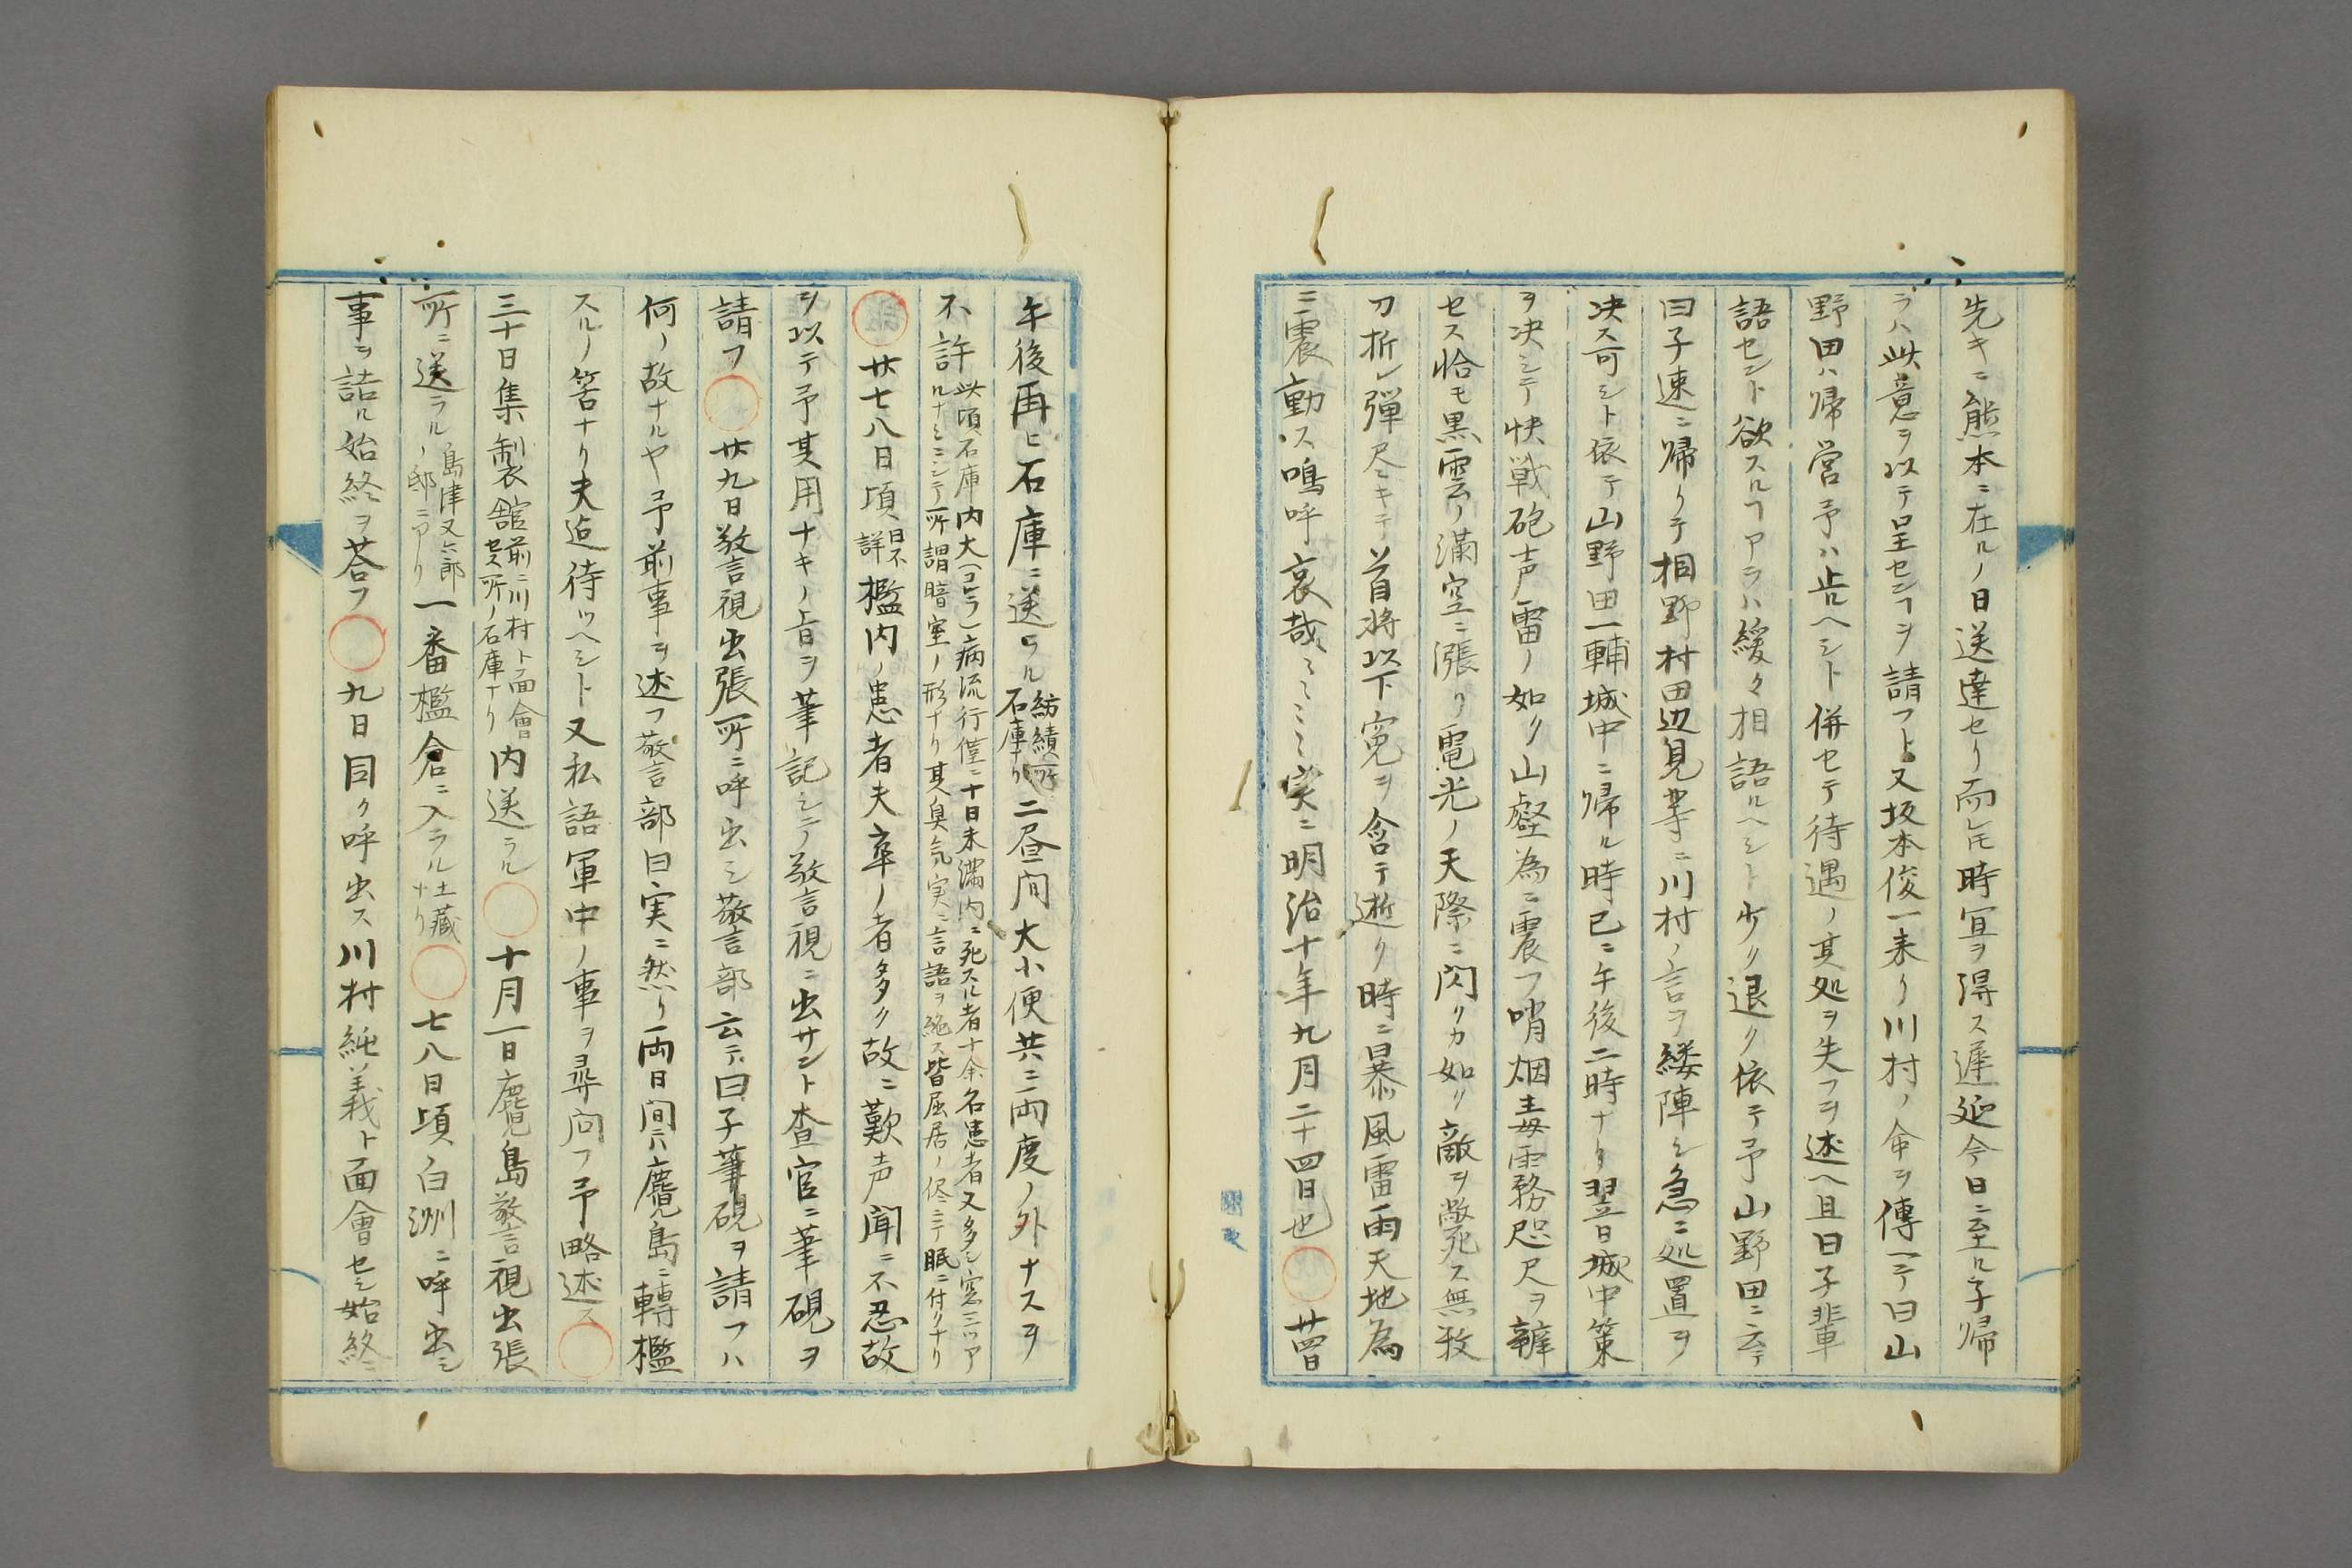 先キニ熊本ニ在ルノ日送達セリ而㐂時宜ヲ得ス遅延今日ニ至ル子帰
ラハ此意ヲ以テ呈センヿヲ請フト又坂本俊一来リ川村ノ命ヲ傳ヘテ曰山
野田ハ帰営予ハ止ヘシト併セテ待遇ノ其処ヲ失フヲ述ヘ且曰子輩
語セント欲スルヿアラハ緩々相語ルヘシト少ク退ク依テ予山野田ニ云テ
曰子速ニ帰リテ相野村田辺見等ニ川村ノ言ヲ縷陣シ急ニ処置ヲ
决ス可シト依テ山野田一輔城中ニ帰ル時已ニ午後二時ナリ翌日城中策
ヲ决シテ快戦砲声雷ノ如ク山壑為ニ震フ哨烟毒霧咫尺ヲ辨
セス恰モ黒雲ノ満空ニ漲リ電光ノ天際ニ閃クカ如ク敵ヲ斃死ス無数
刀折レ彈尽キテ首将以下寃ヲ含テ逝ク時ニ暴風雷雨天地為
ニ震動ス鳴呼哀哉ミミミミ実ニ明治十年九月二十四日也〇廿四日
午後再ヒ石庫ニ送ラル紡績所石庫ナリ二昼間大小便共ニ両度ノ外ナスヲ
不許此頃石庫内大(コロラ)病流行僅ニ十日未満内ニ死スル者十余名患者又多シ窓三ツア
ルナシミシテ所謂暗室ノ形ナリ其臭気実ニ言語ヲ絶ス皆屈居ノ侭ニテ眠ニ付クナリ
〇廿七八日頃日不詳檻内ノ患者夫卒ノ者多ク故ニ歎声聞ニ不忍故
ヲ以テ予其用ナキノ旨ヲ筆記シテ警視ニ出サント査官ニ筆硯ヲ
請フ〇廿九日警視出張所ニ呼出シ警部云テ曰子筆硯ヲ請フハ
何ノ故ナルヤ予前事ヲ述フ警部曰実ニ然リ両日間ニハ麑島ニ轉檻
スルノ筈ナリ夫迠待ツヘシト又私語軍中ノ事ヲ尋问フ予略述ス〇
三十日集製舘前ニ川村ト面會セ共所ノ石庫ナリ内送ラル〇十月一日麑島警視出張
所ニ送ラル島津又六郎ノ邸ニアリ一番檻倉ニ入ラル土藏ナリ〇七八日頃白洲ニ呼出シ
事ヲ詰ル始終ヲ荅フ〇九日同ク呼出ス川村純義ト面會セシ始終ニ